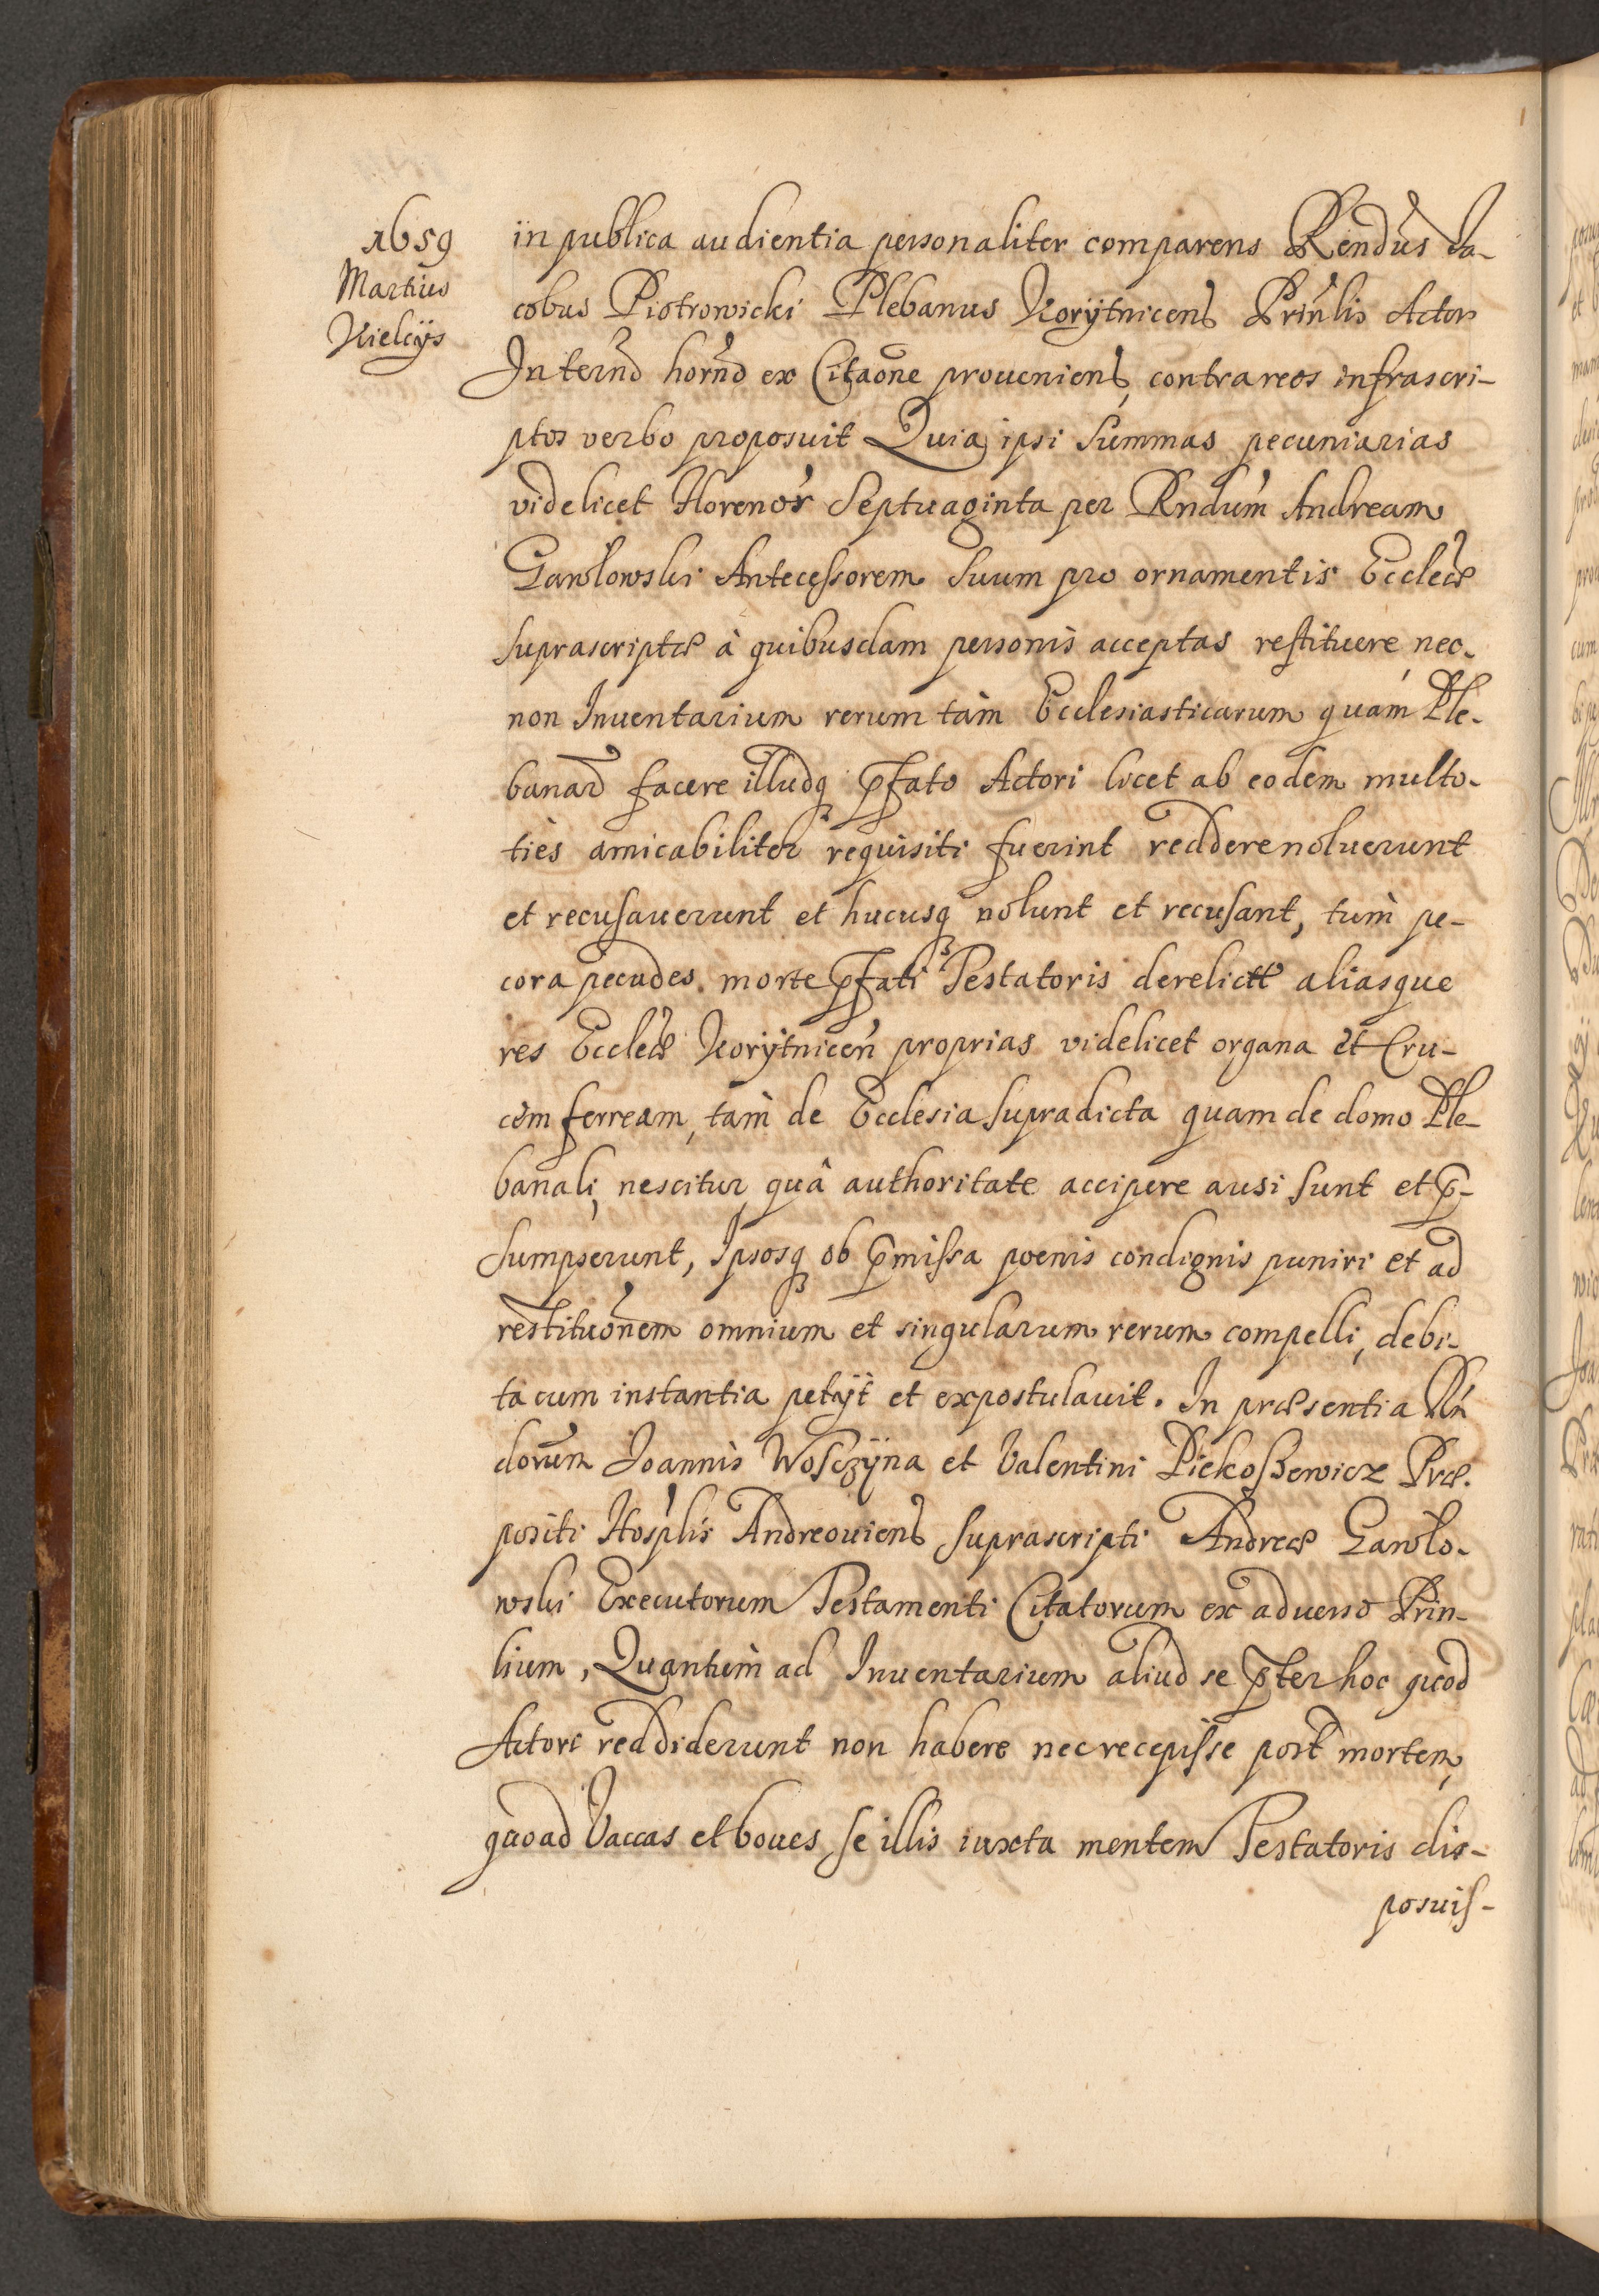 1659
Martius
Kielcijs
in publica audientia personaliter comparens Rendus Ia-
cobus Piotrowicki Plebanus Korÿtnicens Prinlis Actor
In termo horno ex Citaone proueniens, contra reos infrascri-
ptos verbo proposuit Quia ipsi Summas pecuniarias
videlicet florenos Septuaginta per Rndum Andream
Gawłowski Antecessorem Suum pro ornamentis Eccleæ
suprascriptæ à quibusdam personis acceptas restituere, nec-
non Inuentarium rerum tàm Ecclesiasticarum quàm Ple-
banað facere illudq pfato Actori licet ab eodem multo-
tiès amicabiliter requisiti fuerint reddere noluerunt
et recusauerunt et hucusq nolunt et recusant, tum pe-
cora pecudes morte pfati Testatoris derelictæ aliasque
res Eccleæ Korÿtnicen proprias videlicet organa et Cru-
cem ferream, tàm de Ecclesia supradicta quam de domo Ple-
banali, nescitur quâ authoritate accipere ausi sunt et p-
sumpserunt, Ipsosq ob pmissa poenis condignis puniri et ad
restituonem omnium et singularum rerum compelli, debi-
ta cum instantia petijt et expostulauit. In præsentia Rn
dorum Joannis Wosczÿna et Valentini Piekoszewicz Præ-
positi Hosplis Andreouiens suprascripti Andreæ Gawło-
wski Executorum Testamenti Citatorum ex aduerso Prin-
lium, Quantùm ad Inuentarium aliud se pter hoc quod
Actori reddiderunt non habere nec recepisse post mortem,
quoad Vaccas et boues se illis iuxta mentem Testatoris dis-
posuis-